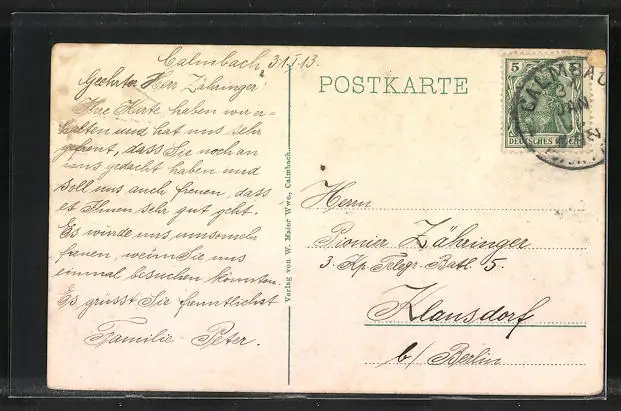 Calmbach, 31.I.13.
Geehrter Herr Zähringer!
Ihre Karte haben wir er-
halten und hat uns sehr
gefreut, dass Sie noch an
uns gedacht haben und
soll uns auch freuen, dass
es Ihnen sehr gut geht.
Es würde uns umsomehr
freuen, wenn Sie uns
einmal besuchen könnten.
Es grüsst Sie freundlichst
Familie Peter.
Verlag von W. Maier Wwe., Calmbach
POSTKARTE
5
DEUTSCHES REICH
CALMBACH
31
JAN
Herrn
Pionier Zähringer
3. Kp. Telegr. Batl. 5.
Klausdorf
b/ Berlin